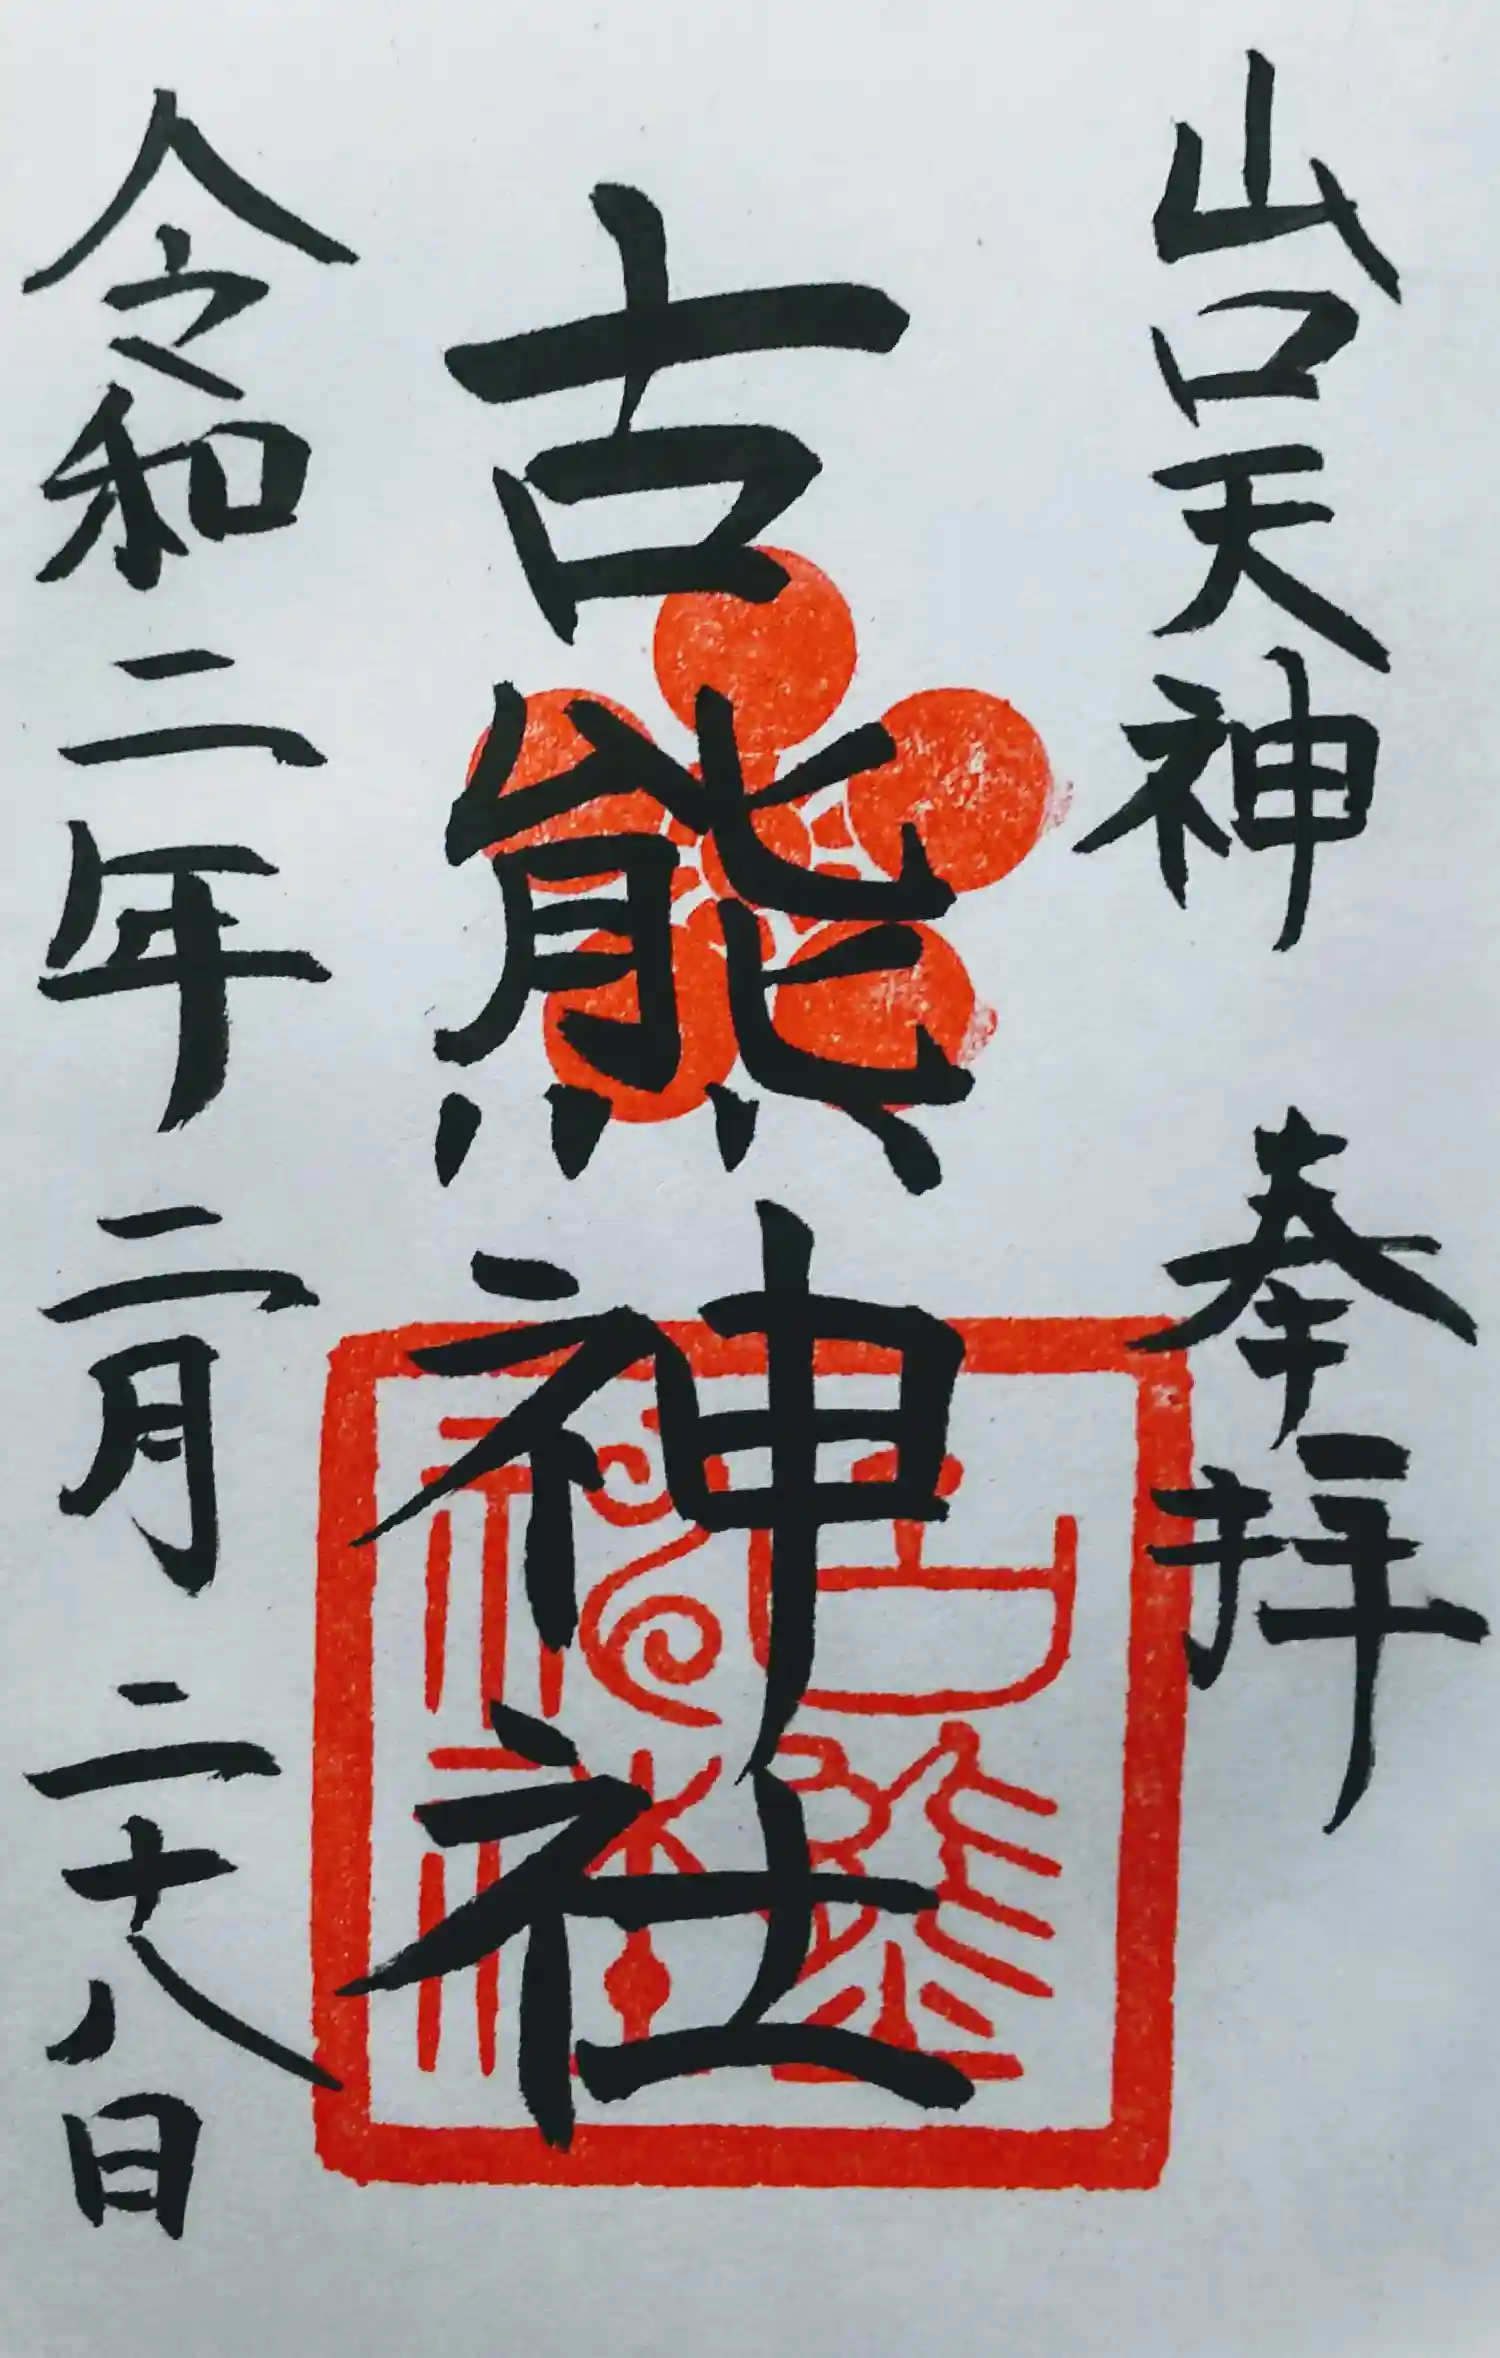 山口天神 奉拝
古熊神社
令和二年二月二十八日
古熊
神社